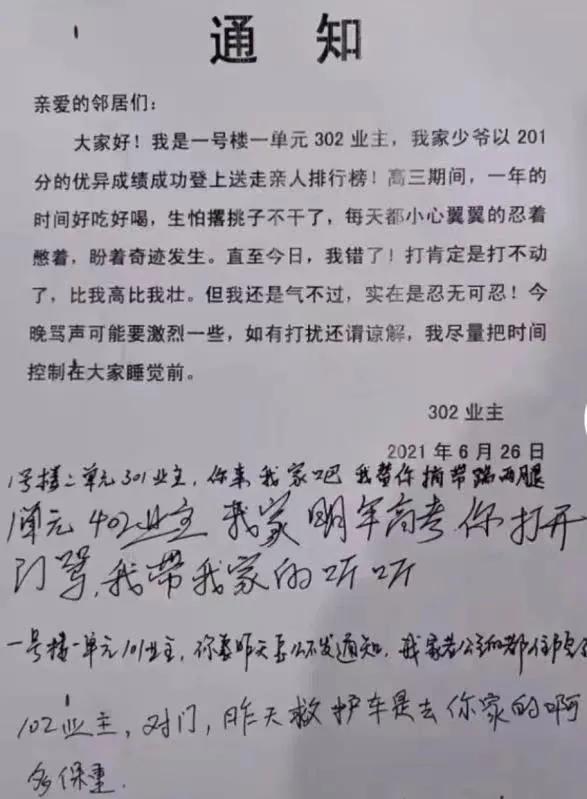 通 知
亲爱的邻居们：
大家好！我是一号楼一单元 302 业主，我家少爷以 201
分的优异成绩成功登上送走亲人排行榜！高三期间，一年的
时间好吃好喝，生怕撂挑子不干了，每天都小心翼翼的忍着
憋着，盼着奇迹发生。直至今日，我错了！打肯定是打不动
了，比我高比我壮。但我还是气不过，实在是忍无可忍！今
晚骂声可能要激烈一些，如有打扰还谓谅解，我尽量把时间
控制在大家睡觉前。
302 业主
2021 年 6 月 26 日
1号楼二单元301业主，你来我家吧 我帮你捎带踹两腿
1单元402业主 我家明年高考 你打开
门骂，我带我家的听听
一号楼一单元101业主，你舍昨天怎么不发通知，我家老公主的都住院了
102业主，对门，昨天救护车是去你家的啊
多保重.